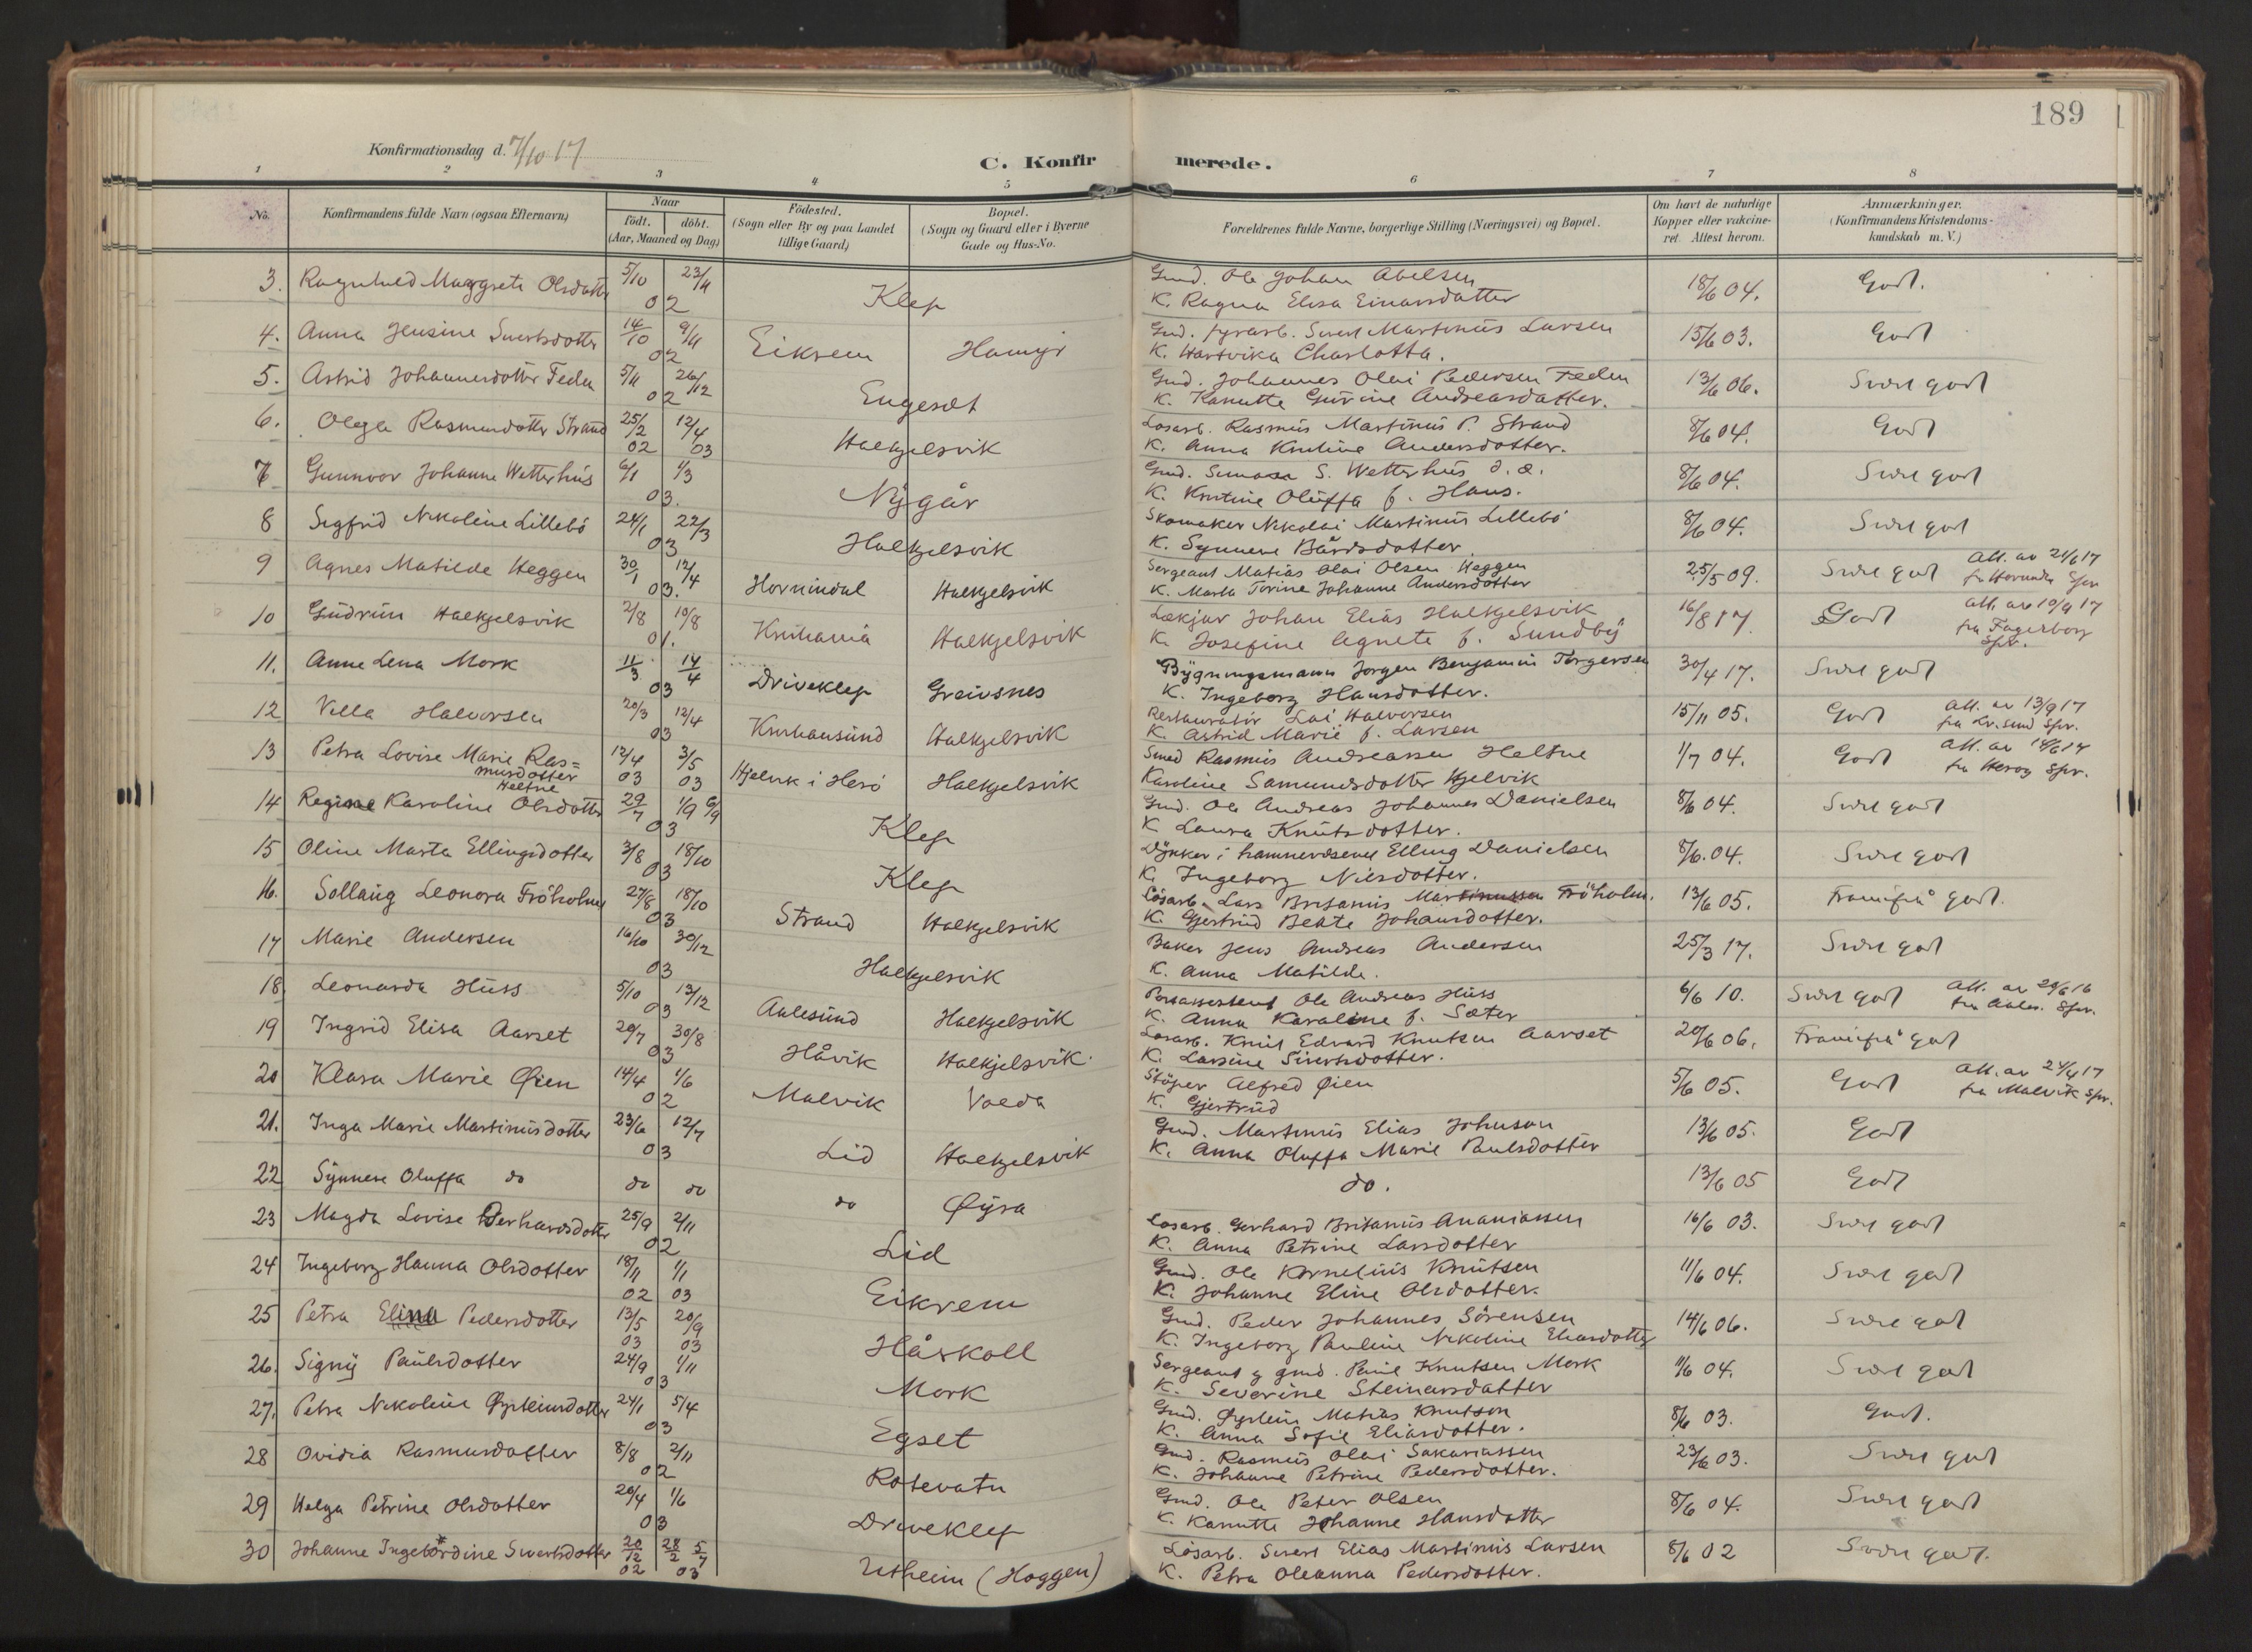 189
Konfirmationsdag d. 7/10 17
C. Konfir merede.
1 2 3 4 5 6 7 8
No. Konfirmandens fulde Navn (ogsaa Efternavn) Naar født. døbt. (Aar, Maaned og Dag) Födested. (Sogn eller By og paa Landet tillige Gaard) Bopæl. (Sogn og Gaard eller i Byerne Gade og Hus-No. Forældrenes fulde Navne, borgerlige Stilling (Næringsvei) og Bopæl. Om havt de naturlige Kopper eller vakcineret. Attest herom. Anmærkninger. (Konfirmandens Kristendomskundskab m. V.)
3. Ragnhild Maggrete Olsdatter 5/10 23/11 02 Klep Gmd. Ole Johan Abelsen 18/6 04. Godt.
K. Ragna Elisa Einarsdatter
4. Anna Jensine Sivertsdotter 14/10 9/11 02 Eikrem Hamyr Gmd. fyrarb. Sivert Martinus Larsen 15/6 03. Godt
K. Hartvika Charlotta.
5. Astrid Johannesdotter Feden 5/11 26/12 02 Engeset Gmd. Johannes Olai Pedersen Feden 13/6 06. Svært godt
K. Kanutte Gurine Andreasdatter.
6. Olga Rasmusdotter Strand 25/2 02 12/4 03 Halkjelsvik Losarb. Rasmus Martinus P. Strand 8/6 04. Godt
K. Anna Kristine Andersdotter.
7 Gunnvor Johanne Wetterhus 6/1 1/3 03. Nygår Gmd. S. Wetterhus d. e. 8/6 04. Svært godt
K. Kristine Oluffa f. Hans.
8 Sigfrid Nikoline Lillebö 24/1 22/3 03 Halkjelsvik Skomaker Nikolai Martinus Lillebö 8/6 04. Svært godt
K. Synneve Bårdsdotter.
9 Agnes Matilde Heggen 30/1 12/4 03. Hornindal Halkjelsvik Sergeant Matias Olai Olsen Heggen 25/5 09. Svært godt Att. av 21/6 17
K. Marta Torine Johanne Andersdotter
10 Gudrun Halkjelsvik 2/8 10/8 01. Kristiania Halkjelsvik Lækjar Johan Elias Halkjelsvik 16/8 17. Godt att. av 10/9 17
fra Fagerborg Spr.
K. Josefine Agnete f. Sundby
11. Anne Lena Mork 11/3 14/4 03 Driveklep Greivsnes Bygningsmann Jorgen Benjamin Torgersen 30/4 17. Svært godt
K. Ingeborg Hansdotter.
12 Villa Halvorsen 20/3 12/4 03 Kristiansund Halkjelsvik Restauratör Lai Halvorsen 15/11 05. Godt att. av 13/9 17
fra Kr.sund Spr.
K. Astrid Marie f. Larsen
13 Petra Lovise Marie Ras=
musdotter
Heltne 12/4 03 3/5 03 Hjelvik i Herö Halkjelsvik Smed Rasmus Andreassen Heltne 1/7 04. Godt
fra Heröy Spr.
Karoline Samundsdotter Hjelvik
14 Regine Karoline Olsdotter 29/7 1/9 6/9 03 Klep Gmd. Ole Andreas Johannes Danielsen 8/6 04. Svært godt
K Laura Knutsdotter.
15 Oline Marta Ellingsdotter 3/8 18/10 03 Klep Dykker i hamnevesenet Elling Danielsen 8/6. 04. Svært godt
K. Ingeborg Nilsdotter.
16. Sollaug Leonora Fröholm 27/8 18/10 03 Strand Halkjelsvik Lösarb. Lars Britanius Martinussen Fröholm. 13/6 05. Framifrå godt.
K. Gjertrud Beate Johansdotter.
17 Marie Andersen 16/10 30/12 03 Halkjelsvik Baker Jens Andreas Andersen 25/3 17. Svært godt
K. Anna Matilde.
18. Leonarda Huss 5/10 13/12 03 Aalesund Halkjelsvik Ole Andreas Huss 6/6 10. Svært godt att. av 29/6 16
fra Aales. Spr.
K. Anna Karoline f. Sæter
19 Ingrid Elisa Aarset 20/7 30/8 03 Håvik Halkjelsvik Losarb. Knut Edvard Knutsen Aarset 20/6 06. Framifrå godt
K. Larsine Sivertsdotter.
20 Klara Marie Øien 14/4 1/6 02 Malvik Volda Stöper Alfred Øien 5/6 05. Godt att. av 24/4 17
fra Malvik Spr.
K. Gjertrud
21. Inga Marie Martinusdotter 23/6 12/7 03 Lid Halkjelsvik Gmd. Martinus Elias Johnson 13/6 05. Godt
K. Anna Oluffa Marie Paulsdotter
22 Synneve Oluffa do do do do Øyra do. 13/6 05 Godt
23 Magda Lovise Gerhardsdotter 25/9 2/11 02 Lid Losarb. Gerhard Britanius Ananiassen 16/6 03. Svært godt
K. Anna Petrine Larsdotter
24 Ingeborg Hanna Olsdotter 18/11 02 1/1 03 Eikrem Gmd. Ole Kornelius Knutsen 11/6 04. Svært godt
K. Johanne Eline Olsdotter.
25 Petra Elina Pedersdotter 13/5 03 20/9 03 Håskoll Gmd. Peder Johannes Sörensen 14/6 06. Svært godt
K. Ingeborg Pauline Nikoline Eliasdotter
26. Signy Paulsdotter 24/9 1/11 03 Mork Sergeant g gmd. Paul Knutsen Mork 11/6 04. Svært godt
K. Severine Steinarsdatter
27. Petra Nikoline Øysteinsdotter 24/1 5/4 03 Egset Gmd. Øystein Matias Knutson 8/6 03. Godt.
K. Anna Sofie Eliasdotter.
28 Ovidia Rasmusdotter 8/8 2/11 02 Rotevatn Gmd. Rasmus Olai Sakariassen 23/6 03. Svært godt
K. Johanne Petrine Pedersdotter.
29 Helga Petrine Olsdotter 20/4 1/6 03 Driveklep Gmd. Ole Peter Olsen 8/6 04. Svært godt
K. Kanutte Johanne Hansdotter
30 Johanne Ingebordine Sivertsdotter 20/12 02 28/2 5/7 03 Utheim (Hoggen) Lösarb. Sivert Elias Martinus Larsen 8/6 02 Svært godt.
K. Petra Oleanna Pedersdotter.